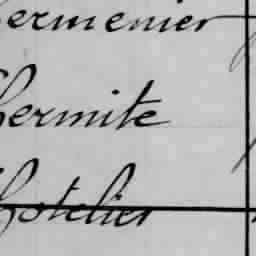 hermenier
hermite
hotelier